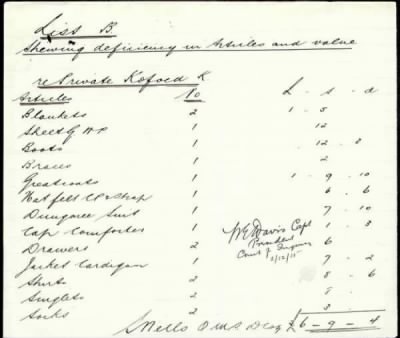 List B.
Shewing deficiency in Articles and value
re Private Kofoed K
Articles No £ - s - d
Blankets 2 1 - 5
Sheet G WP 1 12
Boots 1 12 - 8
Braces 1 2
Greatcoats 1 1 - 9 - 10
Hat felt & Strap 1 6 - 6
Dungaree Suit 1 7 - 10
Cap Comforter 1 1 - 3
Drawers 2 6
Jacket Cardigan 1 7 - 2
Shirts 2 8 - 6
Singlets 2
Socks 2 3
Davis Capt
President
Court of Inquiry
2/12/15
£6 - 9 - 4